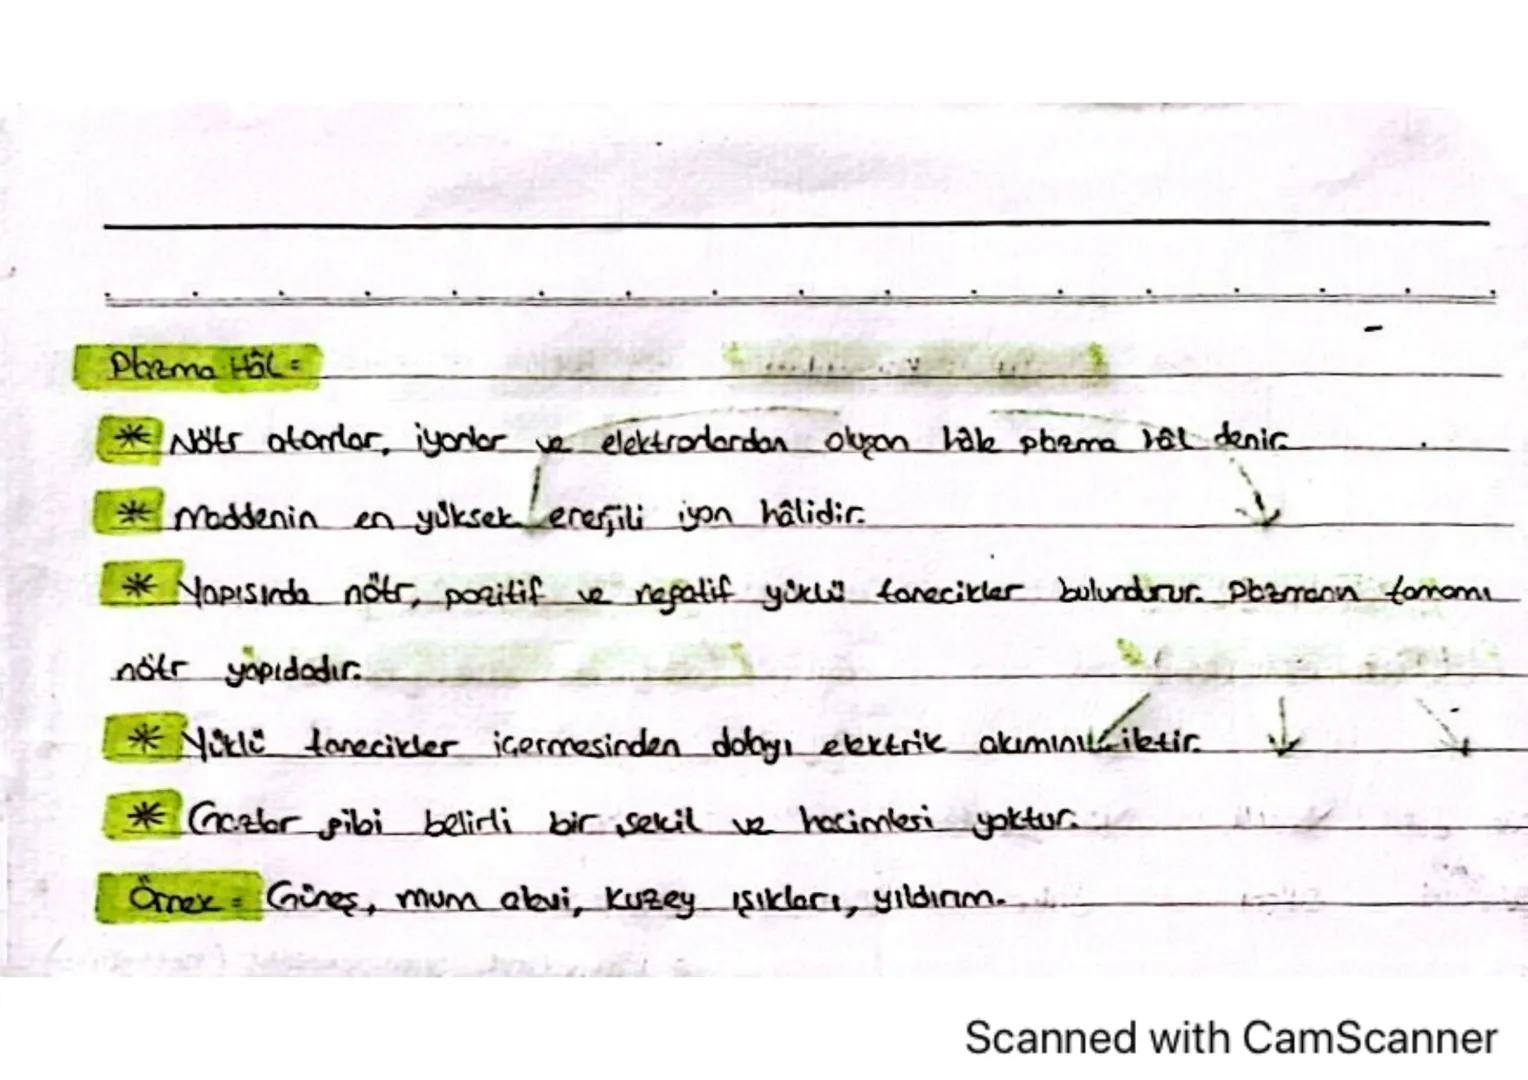 Plazma Hâl =
* Nötr atomlar, iyonlar ve elektronlardan oluşan hâle plazma hâl denir.
* Maddenin en yüksek enerjili iyon hâlidir.
* Yapısında nötr, pozitif ve negatif yüklü tanecikler bulundurur. Plazmanın tamamı
nötr yapıdadır.
* Yüklü tanecikler içermesinden dolayı elektrik akımını iletir.
* Gazlar gibi belirli bir şekil ve hacimleri yoktur.
Örnek = Güneş, mum alevi, Kuzey ışıkları, yıldırım.
Scanned with CamScanner